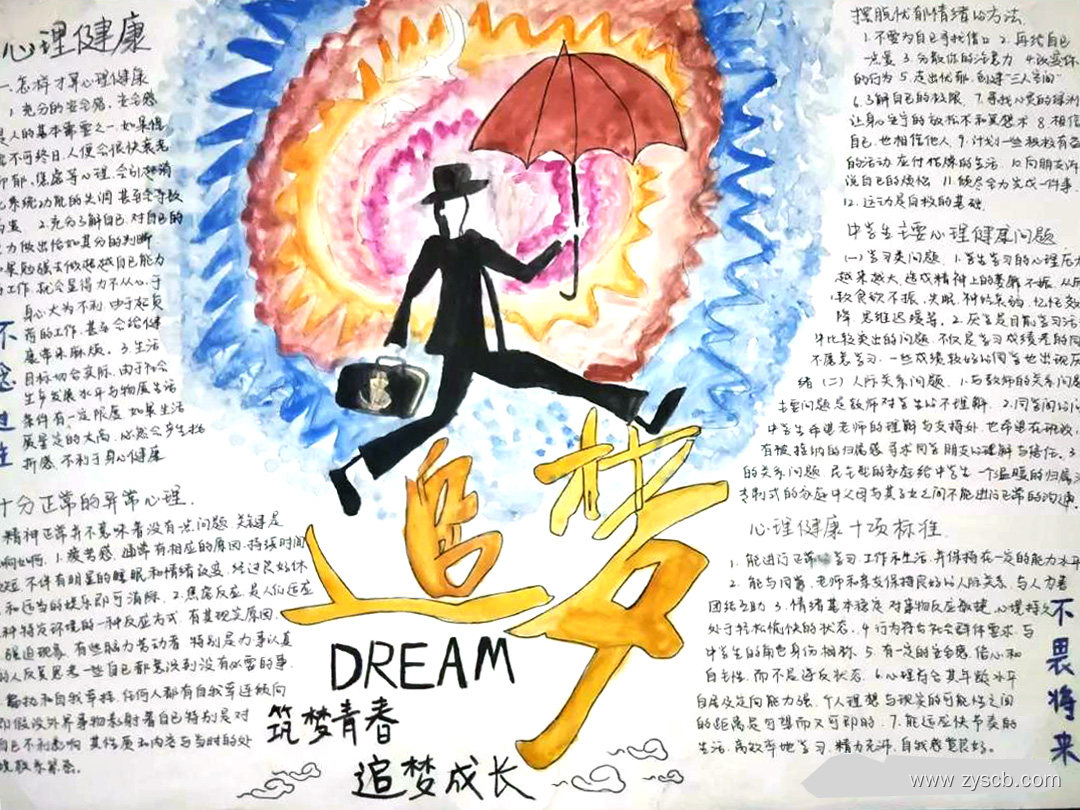 心理健康
一.怎样才算心理健康
1.充分的安全感.安全感
是人的基本需要之一.如果惶
惶不可终日,人便会很快衰老
抑郁.焦虑等心理.会引起消
化系统功能的失调 甚至会导致
病变. 2.充分了解自己.对自己的
能力做出恰如其分的判断
如果勉强去做超越自己能力
的工作.就会显得力不从心.于
身心大为不利.由于超负
荷的工作.甚至会给健
康带来麻烦. 3.生活
目标切合实际.由于社会
生产发展水平与物质生活
条件有一定限度 如果生活
质量定的太高.必然会产生挫
折感.不利于身心健康
不念过往
十分正常的异常心理.
精神正常并不意味着没有一点问题 关键是
1.疲劳感 通常有相应的原因.持续时间
较短 不伴有明显的睡眠和情绪改变.经过良好休
息和适当的娱乐即可消除. 2.焦虑反应是人们适应
某种特定环境的一种反应方式.有其现实原因.
强迫现象.有些脑力劳动者 特别是办事认真
的人反复思考一些自己都意识到没有必要的事.
任何人都有自我牵连倾向
即假设外界事物影射着自己特别是对
自己不利影响 其性质和内容与当时的处
境联系紧密.
追梦
DREAM
筑梦青春
追梦成长
摆脱忧郁情绪的方法.
1.不要为自己寻找借口 2.再给自己
一点爱 3.分散你的注意力 4.改变你
的行为 5.走出忧郁.创建“三人空间”
6.了解自己的极限. 7.寻找心灵的绿洲
让身心宁静的放松术和冥想术 8.相信
自己.也相信他人. 9.计划一些积极有益
的活动 应付枯燥的生活. 10.向朋友诉
说自己的烦恼 11.倾尽全力完成一件事.
12.运动是自救的基础
中学生主要心理健康问题
(一)学习类问题. 1.学生学习的心理压力
越来越大.造成精神上的萎靡不振.从而
导致食欲不振.失眠.神经衰弱.记忆效
降.思维迟缓等. 2.厌学是目前学习活
中比较突出的问题.不仅是学习成绩差的同
不愿意学习.一些成绩较好的同学也出现厌
绪 (二)人际关系问题. 1.与教师的关系问题
主要问题是教师对学生的不理解. 2.同学间的问
中学生希望老师的理解与支持外.也希望在班级.
有被接纳的归属感 寻求同学朋友的理解与信任. 3.
的关系问题 民主型的家庭给中学生一个温暖的归属
专制式的家庭中父母与其子女之间不能进行正常的沟通.
心理健康十项标准.
1.能进行正常学习.工作和生活.并保持在一定的能力水平
2.能与同学.老师和亲友保持良好的人际关系.与人为善
团结互助 3.情绪基本稳定 对事物反应敏捷.心理持久
处于轻松愉快的状态. 4.行为符合社会群体要求.与
中学生的角色身份相称. 5.有一定的安全感.信心和
自主性.而不是逆反状态. 6.心理符合其年龄水平
自居及定向能力强.个人理想与现实的可能性之间
的距离是可望而又可即的. 7.能适应快节奏的
生活.高效率地学习.精力充沛.自我感觉良好.
不畏将来
www.zyscb.com